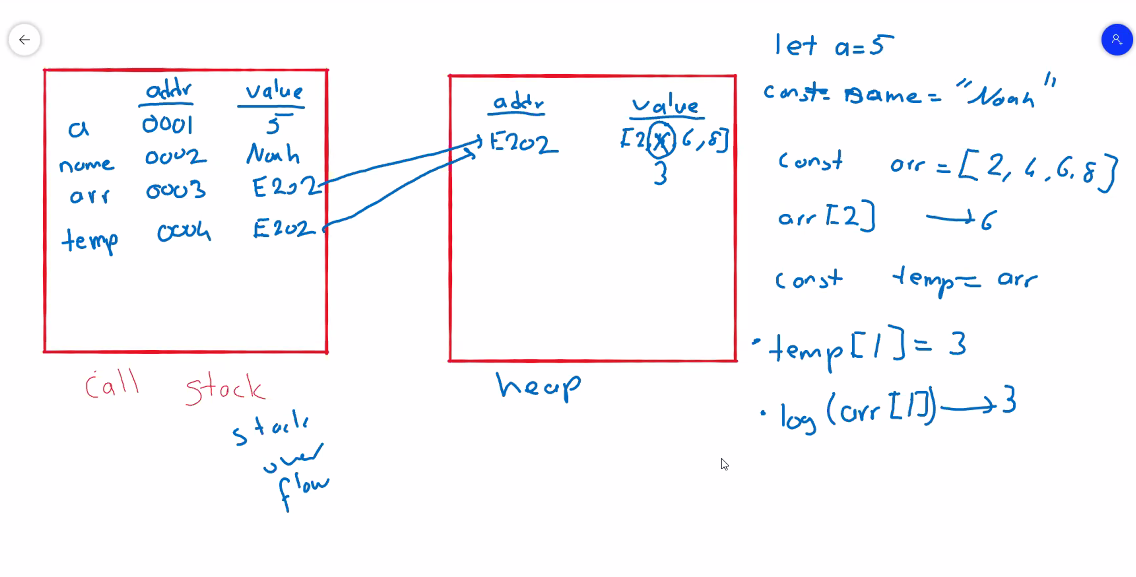 addr value
a 0001 5
name 0002 Noah
arr 0003 E202
temp 0004 E202
call stack
stack
over
flow
addr value
E202 [2, 6, 8]
3
heap
let a=5
const name = "Noah"
const arr = [2, 4, 6, 8]
arr[2] → 6
const temp = arr
• temp[1] = 3
• log(arr[1]) → 3